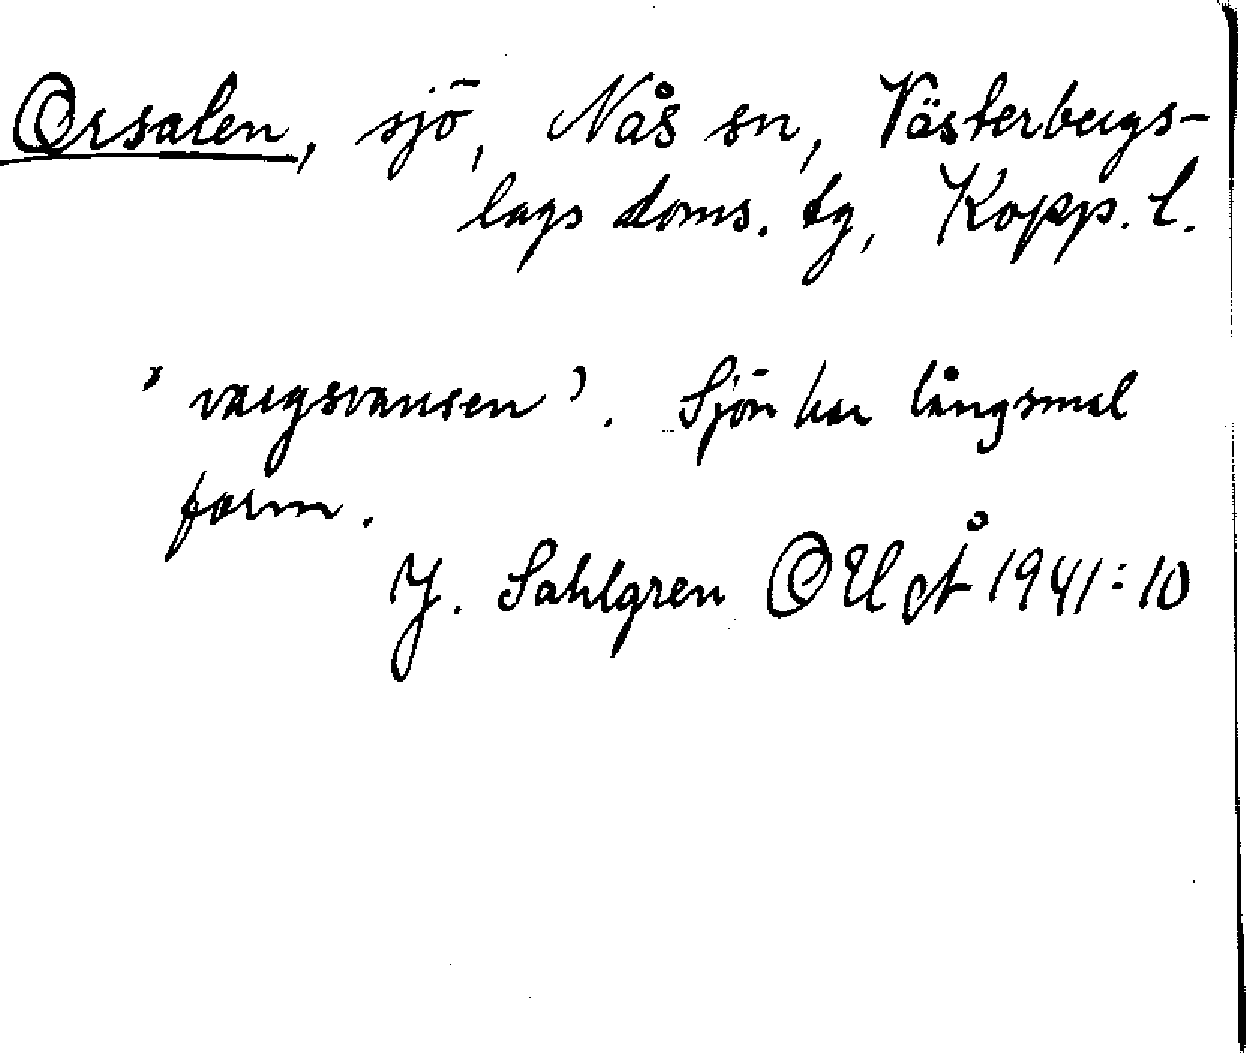 Orsalen, sjö, Nås sn, Västerbergs-
lags doms. tg, Kopp. l.
'vargsvansen'. Sjön har långsmal
form.
J. Sahlgren OUÅ 1941:10